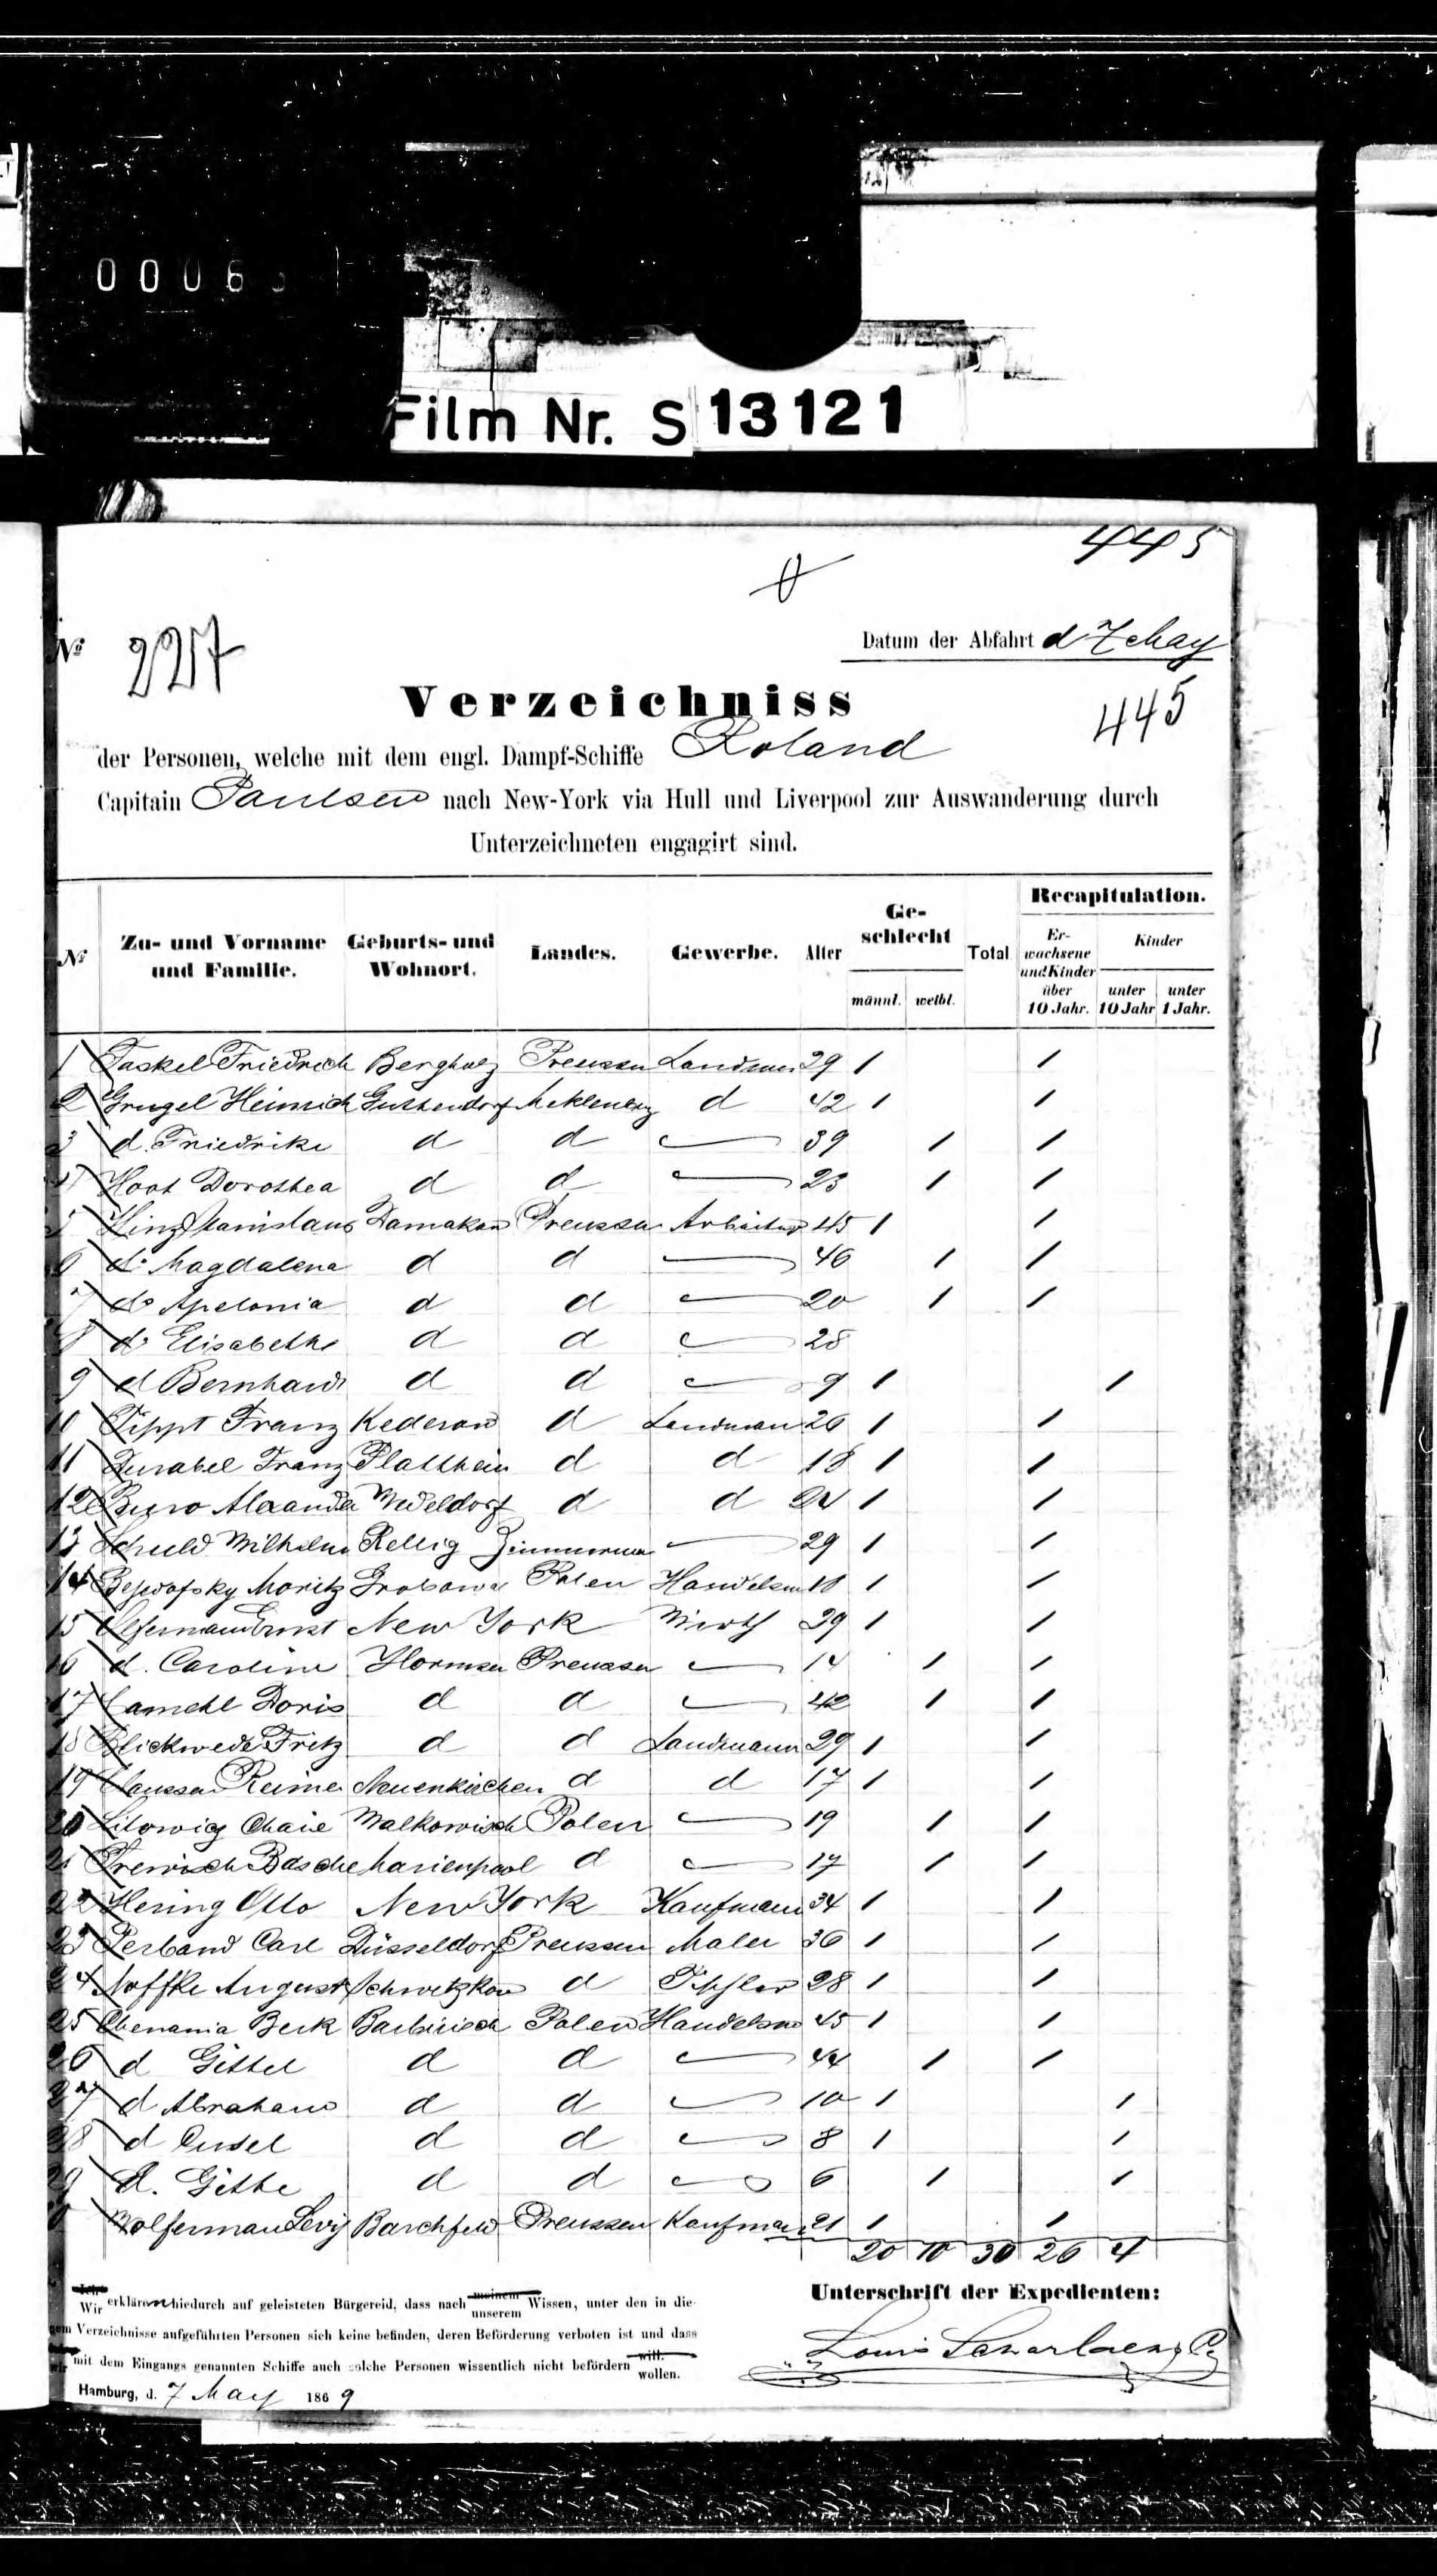 0006
Film Nr. S 13121
445
№ 227
Datum der Abfahrt d 7 May
Verzeichniss
445
der Personen, welche mit dem engl. Dampf-Schiffe Roland
Capitain Paulsen nach New-York via Hull und Liverpool zur Auswanderung durch
Unterzeichneten engagirt sind.
№ Zu- und Vorname und Familie. Geburts- und Wohnort. Landes. Gewerbe. Alter Geschlecht männl. weibl. Total Recapitulation. Erwachsene und Kinder über 10 Jahr. Kinder unter 10 Jahr unter 1 Jahr.
1 Taskel Friedrich Bergholz Preussen Landman 29 1 1
2 Grugel Heinrich Meklenbrg d 42 1 1
3 d. Friedrike d d 39 1 1
4 Hoot Dorothea d d 23 1 1
5 Hinz Stanislaus Damakan Preussen Arbeiter 45 1 1
6 do Magdalena d d 46 1 1
7 do Apelonia d d 20 1 1
8 do Elisabethe d d 28
9 d Bernhard d d 9 1 1
10 Tippt Franz Kederow d Landman 26 1 1
11 Franz d d 18 1 1
12 d d 24 1 1
13 Schuld Wilhelm Rellig Zimmerman 29 1 1
14 Moritz Grobowa Polen Handelsm 18 1 1
15 Ernst New York Wirth 39 1 1
16 d. Caroline Preussen 14 1 1
17 Doris d d 42 1 1
18 Blickwede Fritz d d Landmann 29 1 1
19 Claussen Reimer Neuenkirchen d d 17 1 1
20 Chaie Walkowisch Polen 19 1 1
21 Basche Marienpool d 17 1 1
22 Hering Otto New York Kaufmann 34 1 1
23 Perband Carl Düsseldorf Preussen Maler 36 1 1
24 Noffke August Schwetzkow d Tischler 28 1 1
25 Berk Polen Handelsm 45 1 1
26 d Gittel d d 44 1 1
27 d Abraham d d 10 1 1
28 d d d 8 1 1
29 d. Githe d d 6 1 1
Wolferman Levy Barchfeld Preussen Kaufman 21 1 1
20 10 30 26 4
Unterschrift der Expedienten:
Ich Wir erklären hiedurch auf geleisteten Bürgereid, dass nach meinem unserem Wissen, unter den in die-
sem Verzeichnisse aufgeführten Personen sich keine befinden, deren Beförderung verboten ist und dass
wir mit dem Eingangs genannten Schiffe auch solche Personen wissentlich nicht befördern will. wollen.
Hamburg, d. 7 May 1869